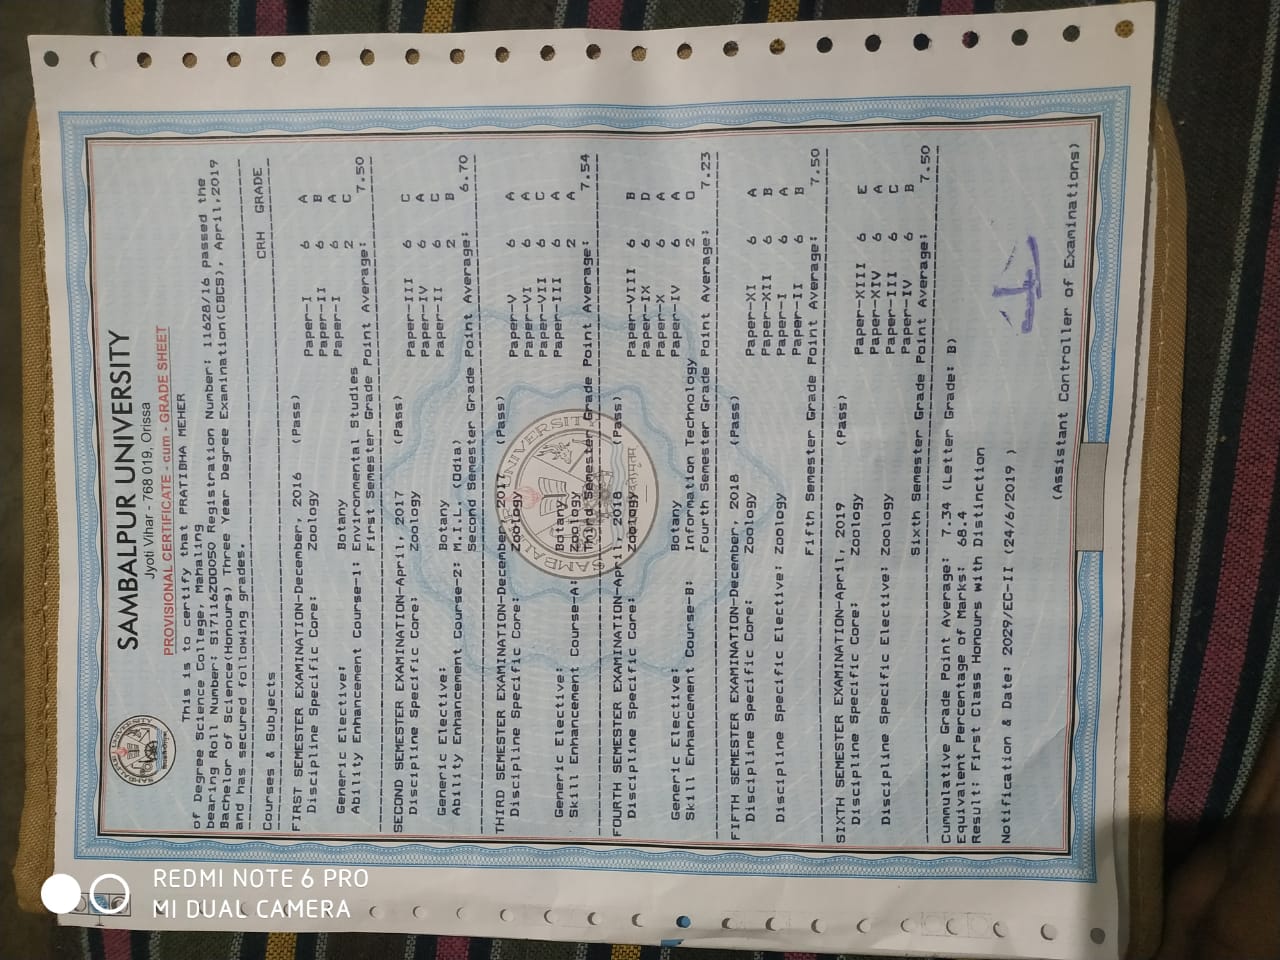 SAMBALPUR UNIVERSITY
Jyoti Vihar - 768 019, Orissa
PROVISIONAL CERTIFICATE - cum - GRADE SHEET
This is to certify that PRATIBHA MEHER
of Degree Science College, Mahaling
bearing Roll Number: S17116ZOO050 Registration Number: 11628/16 passed the
Bachelor of Science(Honours) Three Year Degree Examination(CBCS), April,2019
and has secured following grades.
Courses & Subjects CRH GRADE
FIRST SEMESTER EXAMINATION-December, 2016 (Pass)
Discipline Specific Core: Zoology Paper-I 6 A
Paper-II 6 B
Generic Elective: Botany Paper-I 6 A
Ability Enhancement Course-1: Environmental Studies 2 C
First Semester Grade Point Average: 7.50
SECOND SEMESTER EXAMINATION-April, 2017 (Pass)
Discipline Specific Core: Zoology Paper-III 6 C
Paper-IV 6 A
Generic Elective: Botany Paper-II 6 C
Ability Enhancement Course-2: M.I.L. (Odia) 2 B
Second Semester Grade Point Average: 6.70
THIRD SEMESTER EXAMINATION-December, 2017 (Pass)
Discipline Specific Core: Zoology Paper-V 6 A
Paper-VI 6 A
Paper-VII 6 C
Generic Elective: Botany Paper-III 6 A
Skill Enhancement Course-A: Zoology 2 A
Third Semester Grade Point Average: 7.54
FOURTH SEMESTER EXAMINATION-April, 2018 (Pass)
Discipline Specific Core: Zoology Paper-VIII 6 B
Paper-IX 6 D
Paper-X 6 A
Generic Elective: Botany Paper-IV 6 A
Skill Enhancement Course-B: Information Technology 2 O
Fourth Semester Grade Point Average: 7.23
FIFTH SEMESTER EXAMINATION-December, 2018 (Pass)
Discipline Specific Core: Zoology Paper-XI 6 A
Paper-XII 6 B
Discipline Specific Elective: Zoology Paper-I 6 A
Paper-II 6 B
Fifth Semester Grade Point Average: 7.50
SIXTH SEMESTER EXAMINATION-April, 2019 (Pass)
Discipline Specific Core: Zoology Paper-XIII 6 E
Paper-XIV 6 A
Discipline Specific Elective: Zoology Paper-III 6 C
Paper-IV 6 B
Sixth Semester Grade Point Average: 7.50
Cummulative Grade Point Average: 7.34 (Letter Grade: B)
Equivalent Percentage of Marks: 68.4
Result: First Class Honours with Distinction
Notification & Date: 2029/EC-II (24/6/2019 )
(Assistant Controller of Examinations)
REDMI NOTE 6 PRO
MI DUAL CAMERA